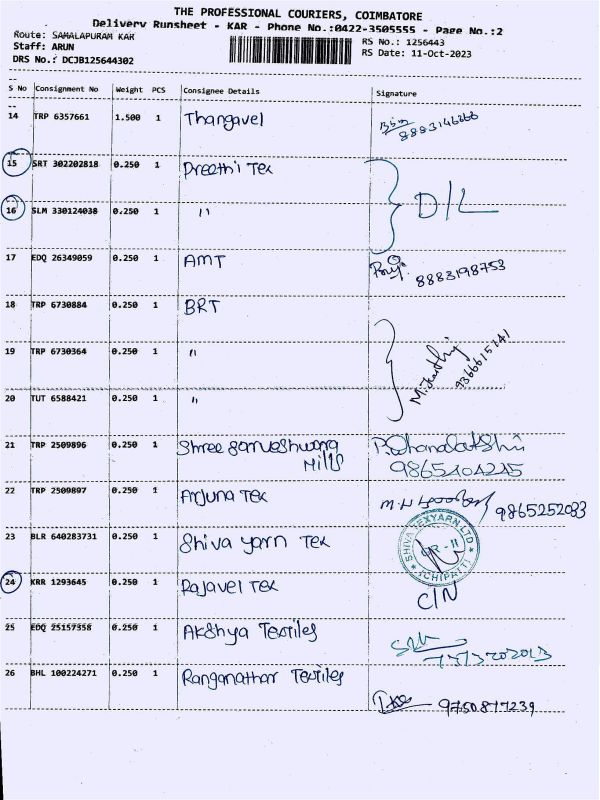 THE PROFESSIONAL COURIERS, COIMBATORE
Delivery Runsheet - KAR - Phone No.:0422-3505555 - Page No.:2
Route: SAMALAPURAM KAR
RS No.: 1256443
Staff: ARUN
RS Date: 11-Oct-2023
DRS No.: DCJB125644302
S No Consignment No Weight PCS Consignee Details Signature
14 TRP 6357661 1.500 1 Thangavel
8883146266
15 SRT 302202818 0.250 1 Preethi Tex
16 SLM 330124038 0.250 1 "
D/L
17 EDQ 26349059 0.250 1 AMT
8883198753
18 TRP 6730884 0.250 1 BRT
19 TRP 6730364 0.250 1 "
9366615141
20 TUT 6588421 0.250 1 "
21 TRP 2509896 0.250 1 Shree
Mills
22 TRP 2509897 0.250 1 Arjuna Tex
9865252033
23 BLR 640283731 0.250 1 Shiva yarn Tex
SHIVA TEXYARN LTD
24 KRR 1293645 0.250 1 Rajavel Tex C/N
25 EDQ 25157358 0.250 1 Akshya Textiles
26 BHL 100224271 0.250 1 Ranganathar Textiles
9750877239